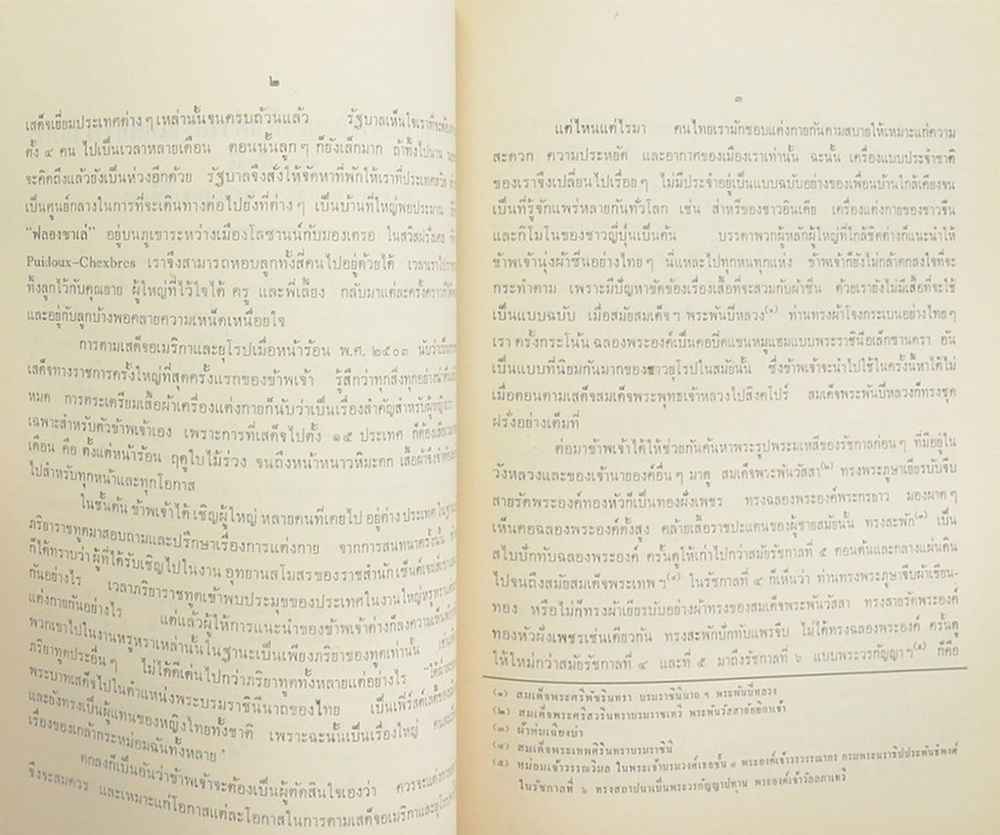 ๒
เสด็จเยี่ยมประเทศต่าง ๆ เหล่านั้นจนครบถ้วนแล้ว รัฐบาลเห็นใจเราที่จะต้อง
ทั้ง ๔ คน ไปเป็นเวลาหลายเดือน ตอนนั้นลูก ๆ ก็ยังเล็กมาก ถ้าทิ้งไปนาน
จะคิดถึงแล้วยังเป็นห่วงอีกด้วย รัฐบาลจึงสั่งให้จัดหาที่พักให้เราที่ประเทศสวิส
เป็นศูนย์กลางในการที่จะเดินทางต่อไปยังที่ต่าง ๆ เป็นบ้านที่ใหญ่พอประมาณ
"ฟลองซาเล่" อยู่บนภูเขาระหว่างเมืองโลซานน์กับมองเตรอ ในสวิสฝรั่งเศส
Puidoux-Chexbres เราจึงสามารถหอบลูกทั้งสี่คนไปอยู่ด้วยได้ เวลาเราไป
ทิ้งลูกไว้กับคุณยาย ผู้ใหญ่ที่ไว้ใจได้ ครู และพี่เลี้ยง กลับมาแต่ละครั้งคราว
และอยู่กับลูกบ้างพอคลายความเหน็ดเหนื่อยใจ
การตามเสด็จอเมริกาและยุโรปเมื่อหน้าร้อน พ.ศ. ๒๕๐๓ นับว่าเป็น
เสด็จทางราชการครั้งใหญ่ที่สุดครั้งแรกของข้าพเจ้า รู้สึกว่าทุกสิ่งทุกอย่าง
หมด การตระเตรียมเสื้อผ้าเครื่องแต่งกายก็นับว่าเป็นเรื่องสำคัญสำหรับผู้หญิง
เฉพาะสำหรับตัวข้าพเจ้าเอง เพราะการที่เสด็จไปตั้ง ๑๕ ประเทศ ก็ต้อง
เดือน คือ ตั้งแต่หน้าร้อน ฤดูใบไม้ร่วง จนถึงหน้าหนาวหิมะตก เสื้อผ้าจึง
ไปสำหรับทุกหน้าและทุกโอกาส
ในชั้นต้น ข้าพเจ้าได้เชิญผู้ใหญ่ หลายคนที่เคยไป อยู่ต่างประเทศ
ภริยาราชทูตมาสอบถามและปรึกษาเรื่องการแต่งกาย จากการสนทนาครั้งนั้น
ก็ได้ทราบว่า ผู้ที่ได้รับเชิญไปในงาน อุทยานสโมสรของราชสำนักเซ็นต์เจมส์
กันอย่างไร เวลาภริยาราชทูตเข้าพบประมุขของประเทศในงานใหญ่หรูหรา
แต่งกายกันอย่างไร แต่แล้วผู้ให้การแนะนำของข้าพเจ้าต่างก็ลงความเห็น
พวกเขาไปในงานหรูหราเหล่านั้นในฐานะเป็นเพียงภริยาของทูตเท่านั้น
ภริยาทูตประอื่น ๆ ไม่ได้ดีเด่นไปกว่าภริยาทูตทั้งหลายแต่อย่างไร
พระบาทเสด็จไปในตำแหน่งพระบรมราชินีนาถของไทย เป็นเฟิร์สต์เลดี้ของ
และยังทรงเป็นผู้แทนของหญิงไทยทั้งชาติ เพราะฉะนั้นเป็นเรื่องใหญ่
เรื่องของเกล้ากระหม่อมฉันทั้งหลาย
ตกลงก็เป็นอันว่าข้าพเจ้าจะต้องเป็นผู้ตัดสินใจเองว่า ควรจะแต่งกาย
จึงจะสมควร และเหมาะแก่โอกาสแต่ละโอกาสในการตามเสด็จอเมริกาและยุโรป
๓
แต่ไหนแต่ไรมา คนไทยเรามักชอบแต่งกายกันตามสบายให้เหมาะแก่ความ
สะดวก ความประหยัด และอากาศของเมืองเราเท่านั้น ฉะนั้น เครื่องแบบประจำชาติ
ของเราจึงเปลี่ยนไปเรื่อย ๆ ไม่มีประจำอยู่เป็นแบบฉบับอย่างของเพื่อนบ้านใกล้เคียงจน
เป็นที่รู้จักแพร่หลายกันทั่วโลก เช่น ส่าหรีของชาวอินเดีย เครื่องแต่งกายของชาวจีน
และกิโมโนของชาวญี่ปุ่นเป็นต้น บรรดาพวกผู้หลักผู้ใหญ่ที่ใกล้ชิดต่างก็แนะนำให้
ข้าพเจ้านุ่งผ้าซิ่นอย่างไทย ๆ นี่แหละไปทุกหนทุกแห่ง ข้าพเจ้าก็ยังไม่กล้าตกลงใจที่จะ
กระทำตาม เพราะมีปัญหาขัดข้องเรื่องเสื้อที่จะสวมกับผ้าซิ่น ด้วยเรายังไม่มีเสื้อที่จะใช้
เป็นแบบฉบับ เมื่อสมัยสมเด็จฯ พระพันปีหลวง(๑) ท่านทรงผ้าโจงกระเบนอย่างไทย ๆ
เรา ครั้งกระโน้น ฉลองพระองค์เป็นคอบี่ดแขนหมูแฮมแบบพระราชินีอเล็กซานดรา อัน
เป็นแบบที่นิยมกันมากของชาวยุโรปในสมัยนั้น ซึ่งข้าพเจ้าจะนำไปใช้ในครั้งนี้หาได้ไม่
เมื่อตอนตามเสด็จสมเด็จพระพุทธเจ้าหลวงไปสิงคโปร์ สมเด็จพระพันปีหลวงก็ทรงชุด
ฝรั่งอย่างเต็มที่
ต่อมาข้าพเจ้าได้ให้ช่วยกันค้นหาพระรูปพระมเหสีของรัชกาลก่อน ๆ ที่มีอยู่ใน
วังหลวงและของเจ้านายองค์อื่น ๆ มาดู สมเด็จพระพันวัสสา(๒) ทรงพระภูษาเยียรบับจีบ
สายรัดพระองค์ทองหัวก็เป็นทองฝังเพชร ทรงฉลองพระองค์พระกรยาว มองผาด ๆ
เห็นคอฉลองพระองค์ตั้งสูง คล้ายเสื้อราชปะแตนของผู้ชายสมัยนั้น ทรงสะพัก(๓) เป็น
สไบปักทับฉลองพระองค์ ครั้นดูให้เก่าไปกว่าสมัยรัชกาลที่ ๕ ตอนต้นและกลางแผ่นดิน
ไปจนถึงสมัยสมเด็จพระเทพฯ(๔) ในรัชกาลที่ ๔ ก็เห็นว่า ท่านทรงพระภูษาจีบผ้าเขียน-
ทอง หรือไม่ก็ทรงผ้าเยียรบับอย่างผ้าทรงของสมเด็จพระพันวัสสา ทรงสายรัดพระองค์
ทองหัวฝังเพชรเช่นเดียวกัน ทรงสะพักปักทับแพรจีบ ไม่ได้ทรงฉลองพระองค์ ครั้นดู
ให้ใหม่กว่าสมัยรัชกาลที่ ๔ และที่ ๕ มาถึงรัชกาลที่ ๖ แบบพระวรกัญญาฯ(๕) ก็คือ
(๑) สมเด็จพระศรีพัชรินทรา บรมราชินีนาถ ฯ พระพันปีหลวง
(๒) สมเด็จพระศรีสวรินทราบรมราชเทวี พระพันวัสสาอัยยิกาเจ้า
(๓) ผ้าห่มเฉียงบ่า
(๔) สมเด็จพระเทพศิรินทราบรมราชินี
(๕) หม่อมเจ้าวรรณวิมล ในพระเจ้าบรมวงศ์เธอชั้น ๔ พระองค์เจ้าวรวรรณากร กรมพระนราธิปประพันธ์พงศ์
ในรัชกาลที่ ๖ ทรงสถาปนาเป็นพระวรกัญญาปทาน พระองค์เจ้าวัลลภาเทวี